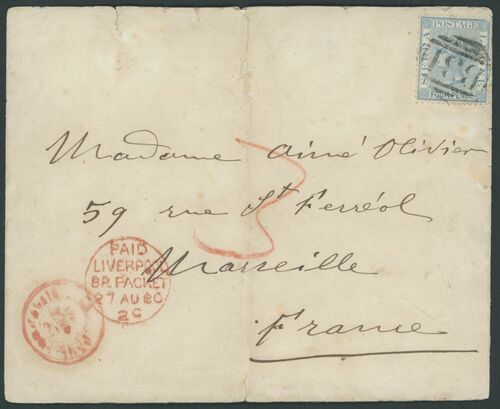 POSTAGE
FOUR PENCE
Madame Aimé Olivier
59 rue St Ferréol
Marseille
France
3
PAID
LIVERPOOL
BR. PACKET
27 AU 80
2C